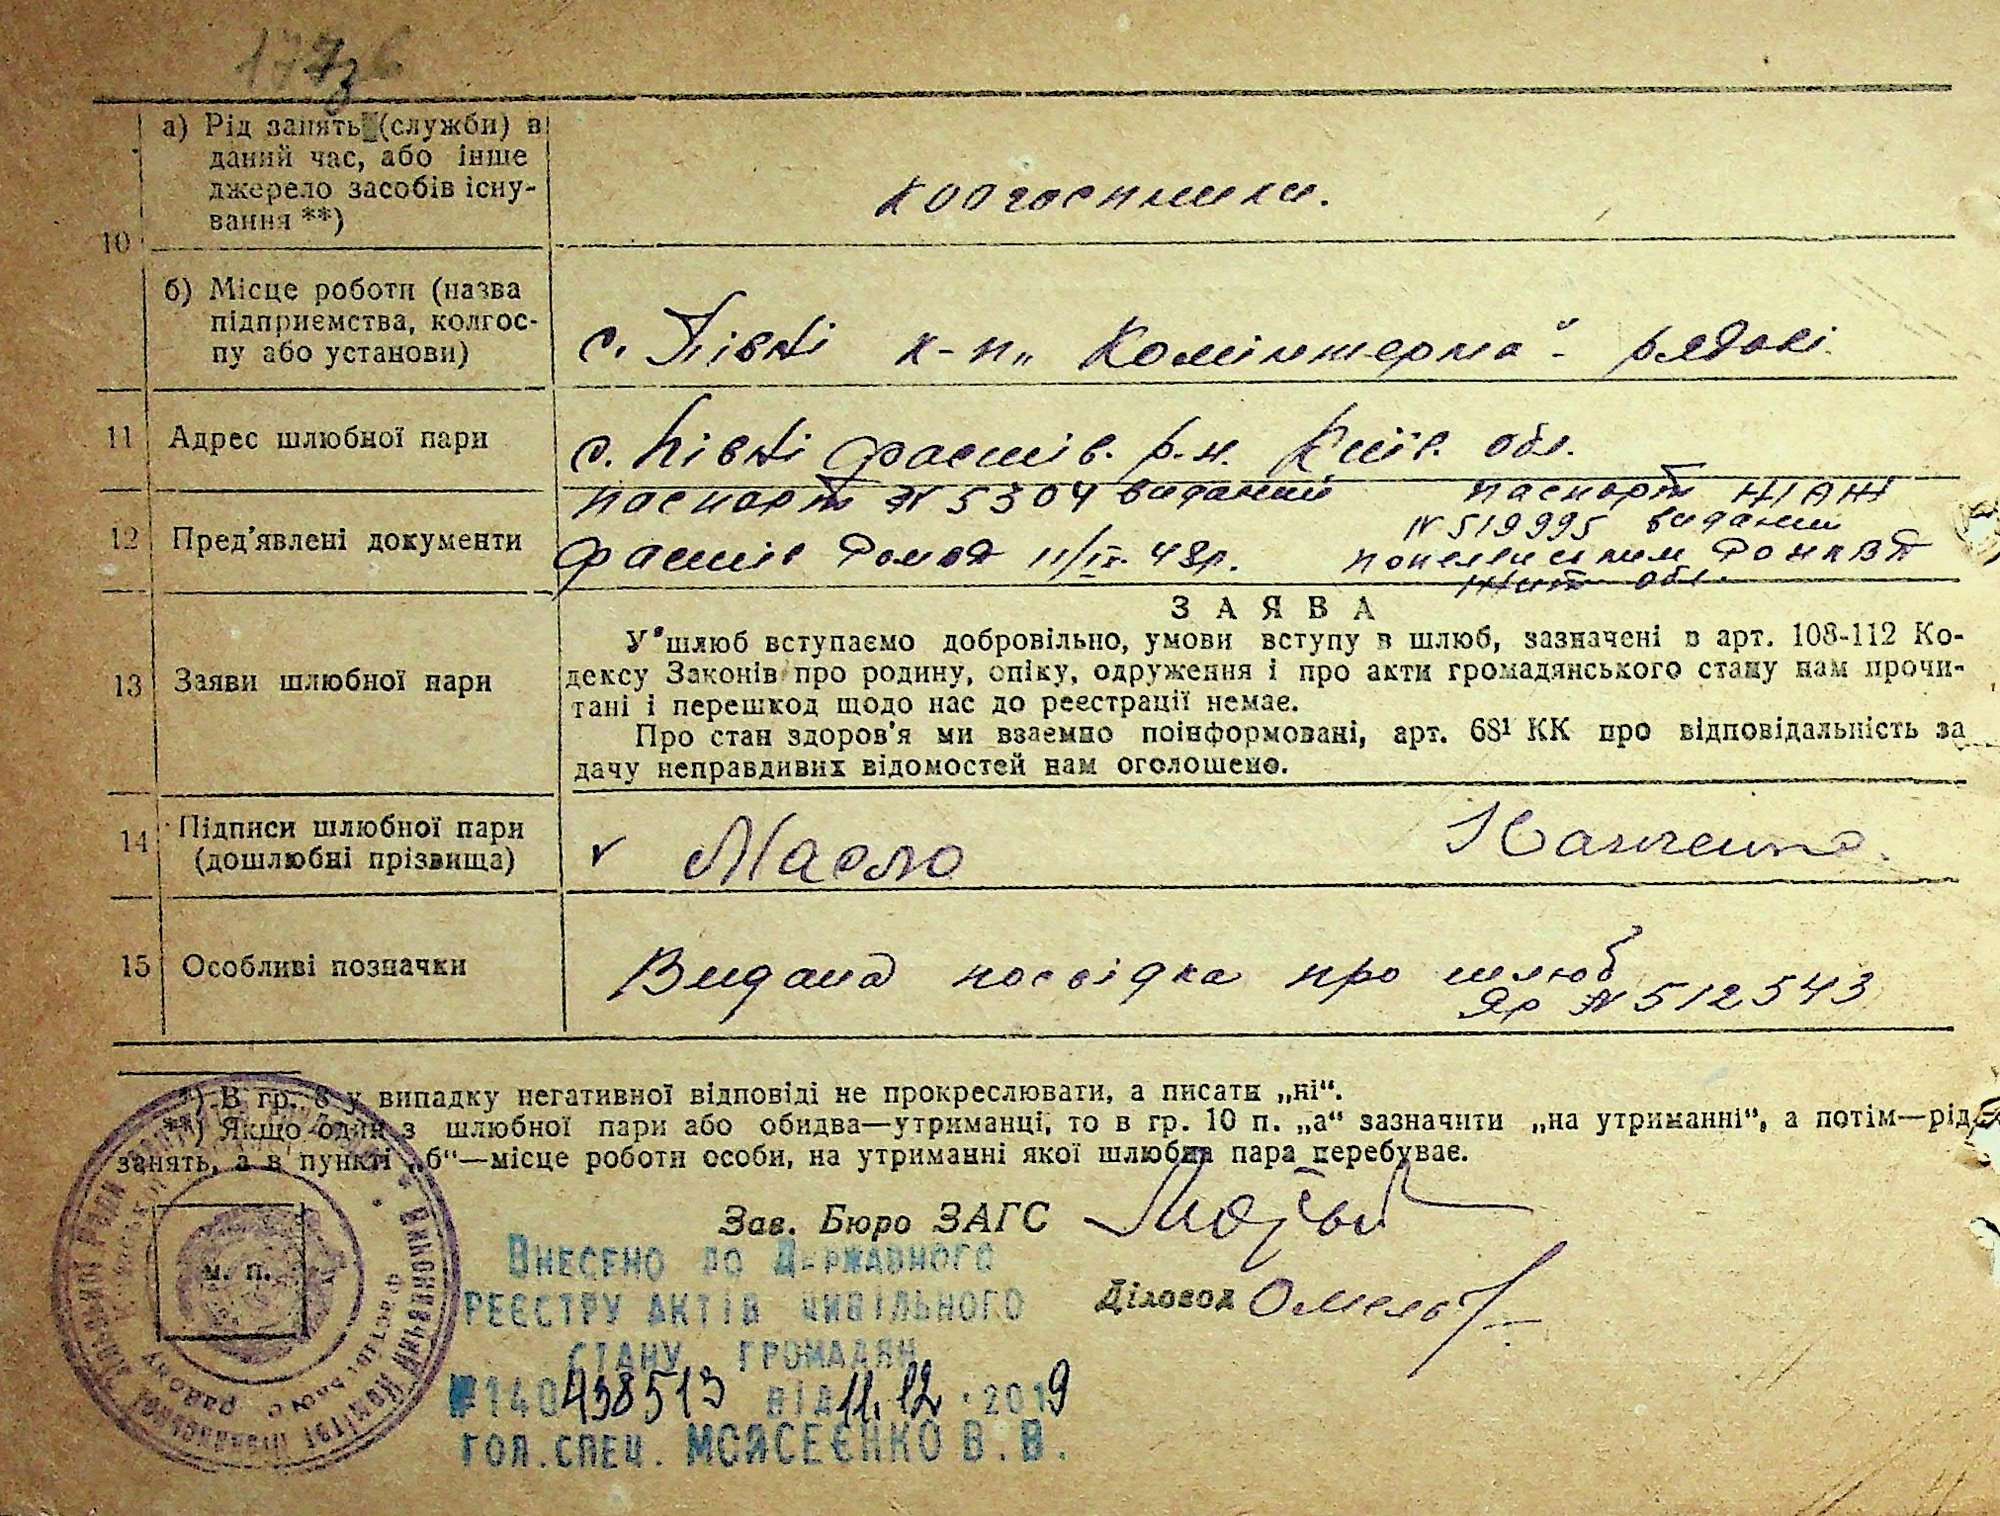 а) Рід занять (служби) в
даний час, або інше
джерело засобів існу-
вання **)
колгоспники.
10
б) Місце роботи (назва
підприємства, колгос-
пу або установи)
с. Півні к-п „Комінтерна“ - рядові
11 Адрес шлюбної пари
с. Півні Фастів. р-н. Київ. обл.
12 Пред’явлені документи
паспорт № 5304 виданий
Фастів 11/IV. 48р.
паспорт
№ 519995 виданий
обл.
13 Заяви шлюбної пари
ЗАЯВА
У шлюб вступаємо добровільно, умови вступу в шлюб, зазначені в арт. 108-112 Ко-
дексу Законів про родину, опіку, одруження і про акти громадянського стану нам прочи-
тані і перешкод щодо нас до реєстрації немає.
Про стан здоров’я ми взаємно поінформовані, арт. 68¹ КК про відповідальність за
дачу неправдивих відомостей нам оголошено.
14 Підписи шлюбної пари
(дошлюбні прізвища)
v Масло
15 Особливі позначки
Видана посвідка про шлюб
ЯР № 512543
*) В гр. 8 у випадку негативної відповіді не прокреслювати, а писати „ні“.
**) Якщо один з шлюбної пари або обидва—утриманці, то в гр. 10 п. „а“ зазначити „на утриманні“, а потім—рід
занять, а в пункті „б“—місце роботи особи, на утриманні якої шлюбна пара перебуває.
Зав. Бюро ЗАГС
м. п.
Діловод
Внесено до Державного
реєстру актів цивільного
стану громадян
№140438513 від 11.12.2019
гол.спец. Моясеєнко В.В.